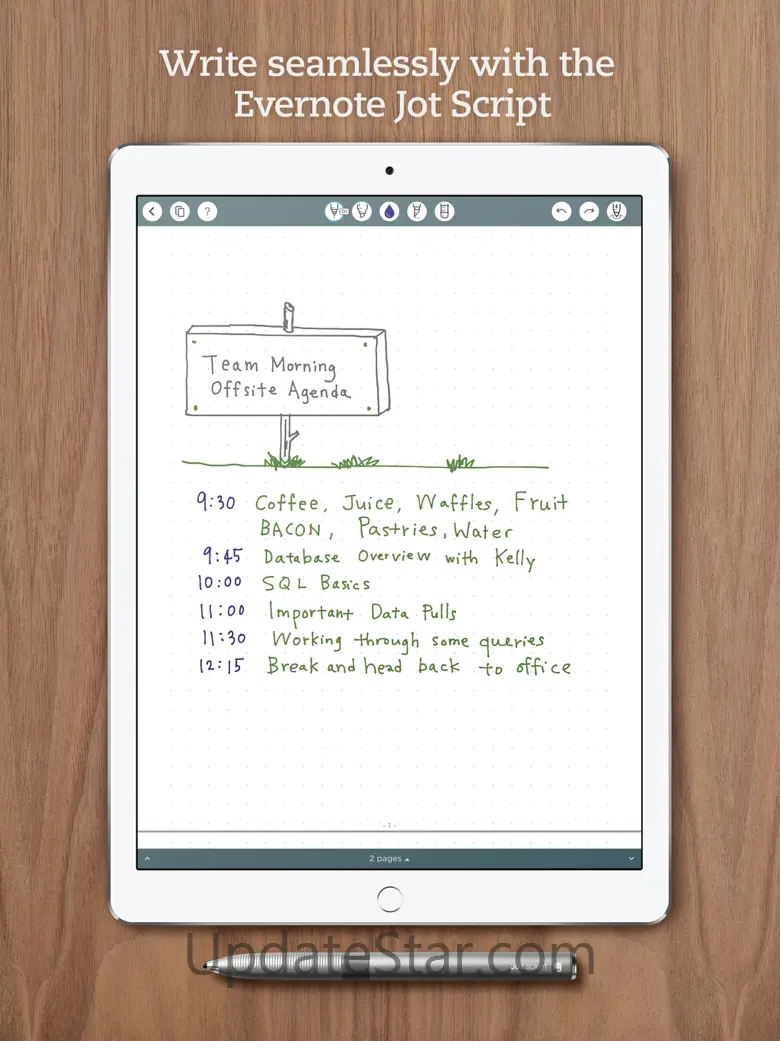 Write seamlessly with the
Evernote Jot Script
?
Team Morning
Offsite Agenda
9:30 Coffee, Juice, Waffles, Fruit
BACON, Pastries, Water
9:45 Database Overview with Kelly
10:00 SQL Basics
11:00 Important Data Pulls
11:30 Working through some queries
12:15 Break and head back to office
- 1 -
2 pages
UpdateStar.com